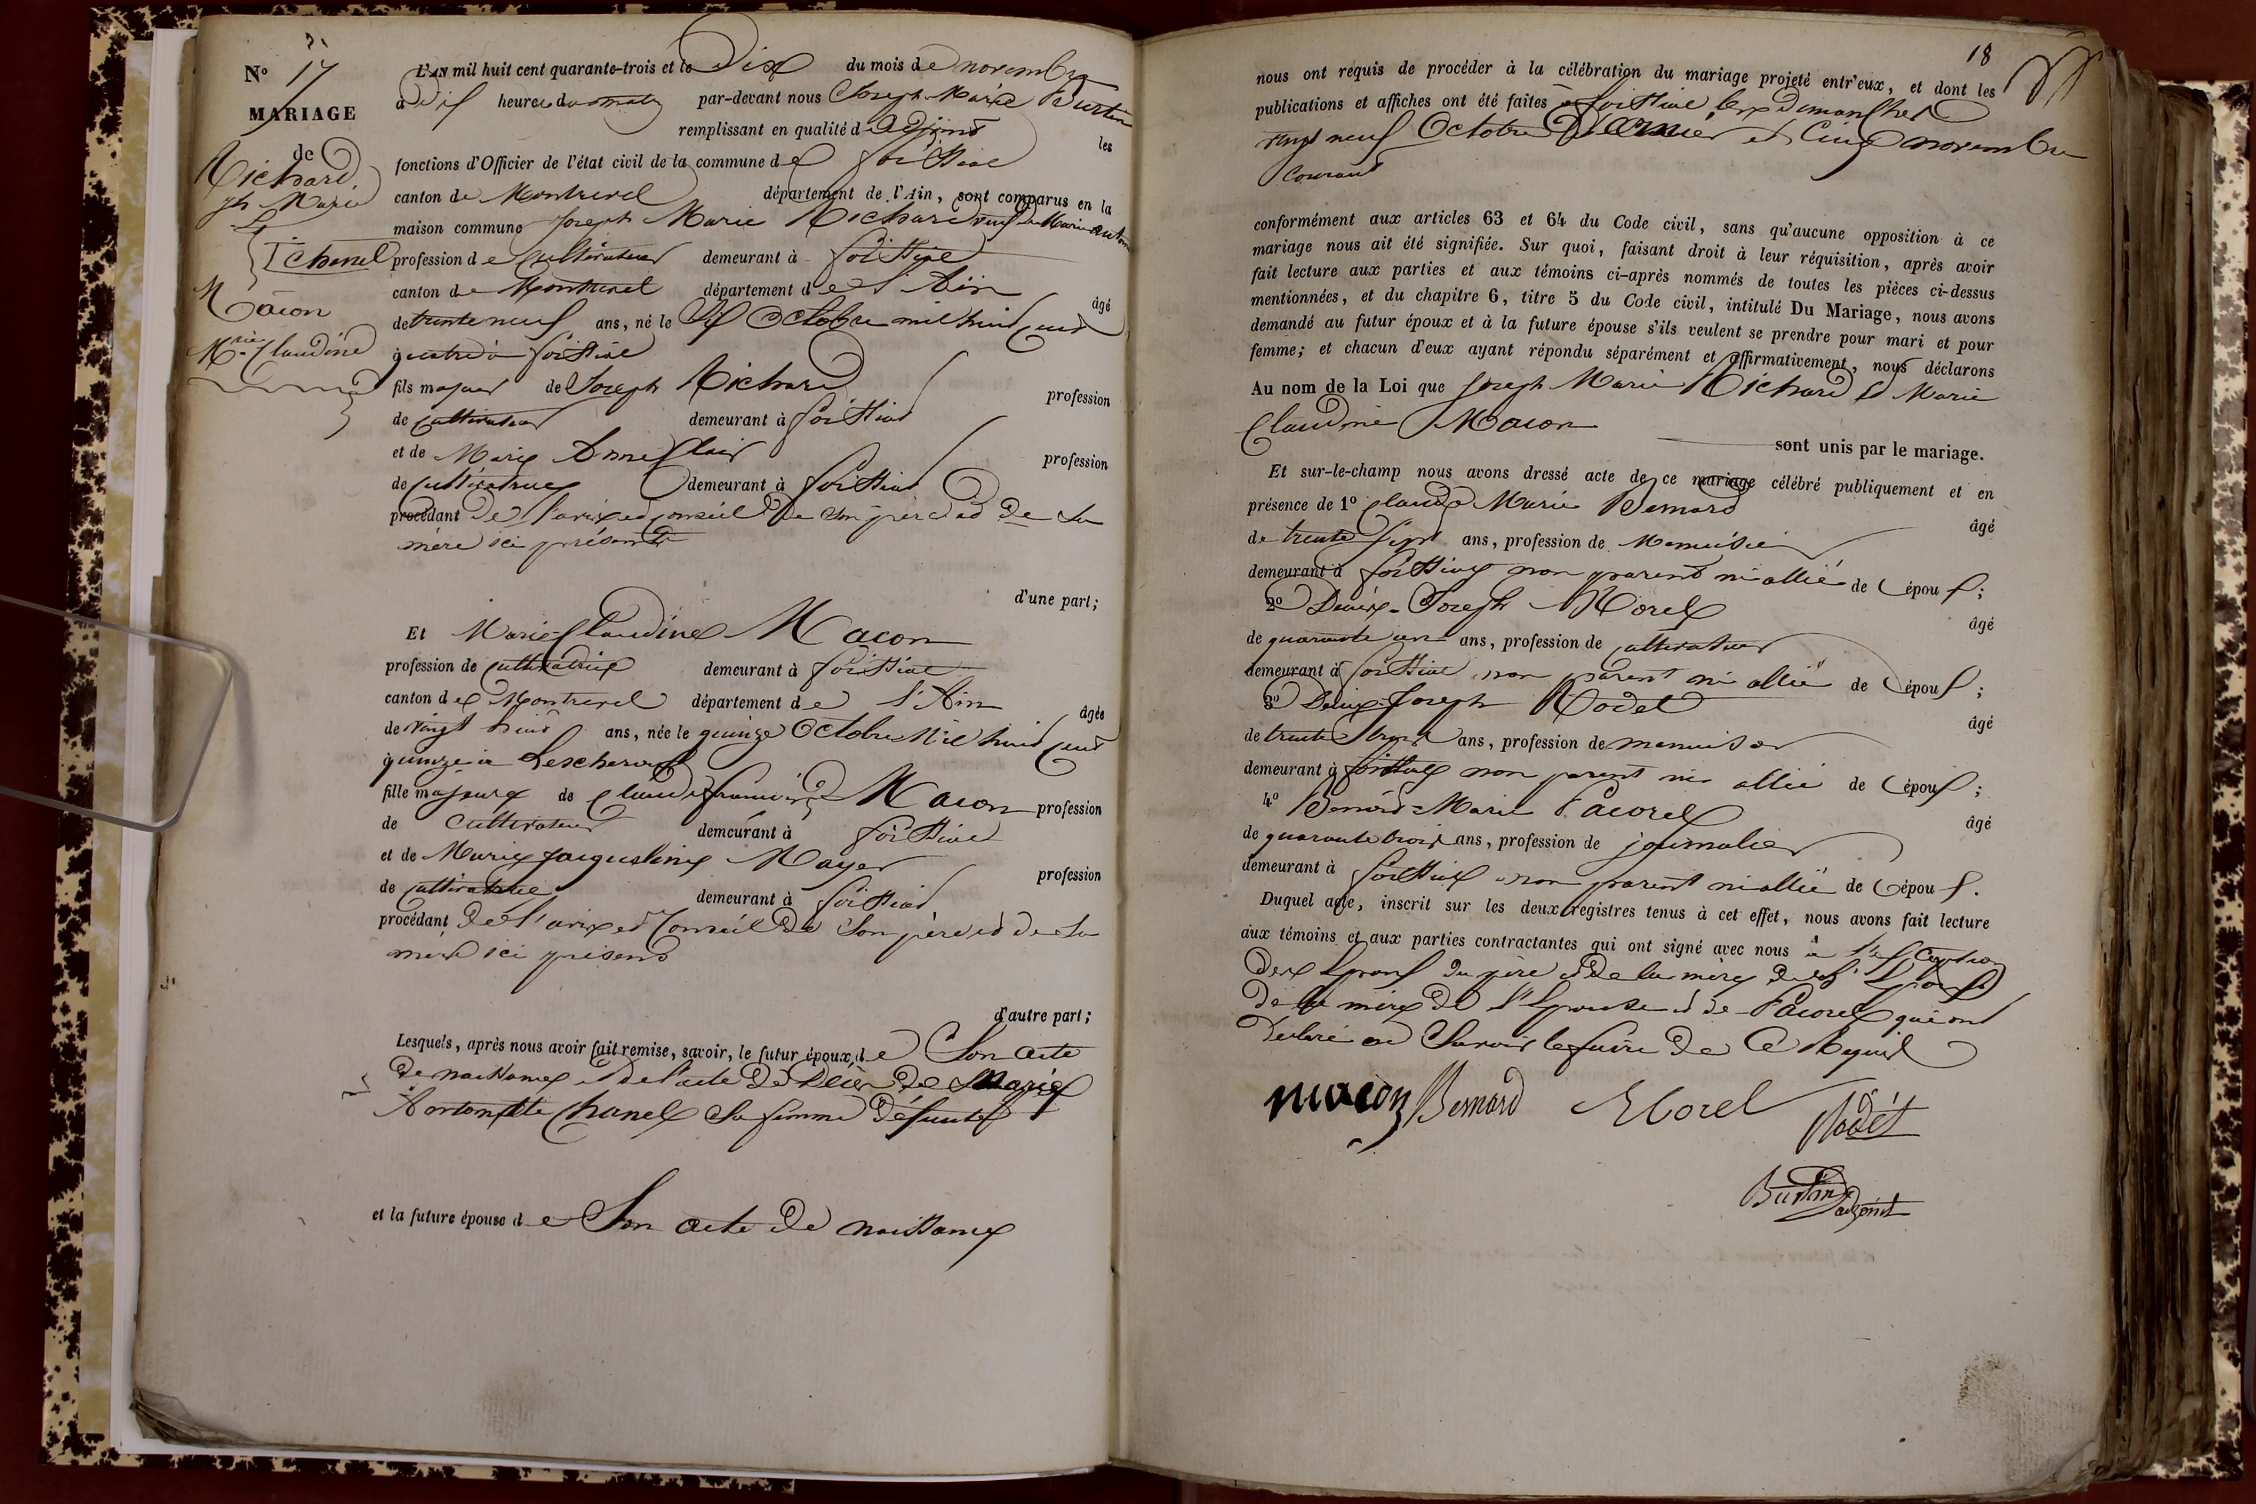 N° 17
MARIAGE
de
Richard
Jh Marie
Chanel
Macon
Mie Claudine
L'AN mil huit cent quarante-trois et le Dix du mois de novembre
à Dix heures du matin par-devant nous Joseph Marie Burtin
remplissant en qualité d'adjoint les
fonctions d'Officier de l'état civil de la commune de foissiat
canton de Montrevel département de l'Ain, sont comparus en la
maison commune Joseph Marie Richard veuf de Marie
profession de cultivateur demeurant à foissiat
canton de Montrevel département de l'Ain âgé
de trente neuf ans, né le Dix Octobre mil huit cent
quatre à foissiat
fils majeur de Joseph Richard profession
de cultivateur demeurant à foissiat
et de Marie Anne Clair profession
de cultivatrice demeurant à foissiat
procédant de l'avis et conseil de son père et de sa
mère ici présents
d'une part;
Et Marie Claudine Macon
profession de cultivatrice demeurant à foissiat
canton de Montrevel département de l'Ain âgée
de vingt huit ans, née le quinze Octobre Mil huit cent
quinze à Lescheroux
fille majeure de Claude françois Macon profession
de cultivateur demeurant à foissiat
et de Marie Jacqueline Mayer profession
de cultivatrice demeurant à foissiat
procédant de l'avis et Conseil de son père et de sa
mère ici présents
d'autre part;
Lesquels, après nous avoir fait remise, savoir, le futur époux, de Son acte
de naissance et de l'acte de décès de Marie
Antoinette Chanel sa femme défunte
et la future épouse de Son acte de naissance
18
nous ont requis de procéder à la célébration du mariage projeté entr'eux, et dont les
publications et affiches ont été faites à foissiat les Dimanches
vingt neuf Octobre dernier et Cinq novembre
Courant
conformément aux articles 63 et 64 du Code civil, sans qu'aucune opposition à ce
mariage nous ait été signifiée. Sur quoi, faisant droit à leur réquisition, après avoir
fait lecture aux parties et aux témoins ci-après nommés de toutes les pièces ci-dessus
mentionnées, et du chapitre 6, titre 5 du Code civil, intitulé Du Mariage, nous avons
demandé au futur époux et à la future épouse s'ils veulent se prendre pour mari et pour
femme; et chacun d'eux ayant répondu séparément et affirmativement, nous déclarons
Au nom de la Loi que Joseph Marie Richard et Marie
Claudine Macon
sont unis par le mariage.
Et sur-le-champ nous avons dressé acte de ce mariage célébré publiquement et en
présence de 1° Claude Marie Bernard âgé
de trente sept ans, profession de Menuisier
demeurant à foissiat non parent ni allié de l'époux;
2° Denis-Joseph Morel âgé
de quarante un ans, profession de cultivateur
demeurant à foissiat non parent ni allié de l'époux;
3° Denis-Joseph Rodet âgé
de trente trois ans, profession de menuisier
demeurant à foissiat non parent ni allié de l'époux;
4° Benoit-Marie Pacorel âgé
de quarante trois ans, profession de journalier
demeurant à foissiat non parent ni allié de l'époux.
Duquel acte, inscrit sur les deux registres tenus à cet effet, nous avons fait lecture
aux témoins et aux parties contractantes qui ont signé avec nous à l'exception
des époux du père et de la mère de l'époux
de la mère de l'épouse et de Pacorel qui ont
déclaré ne savoir le faire de ce requis
macon Bernard Morel Rodet
Burtin adjoint